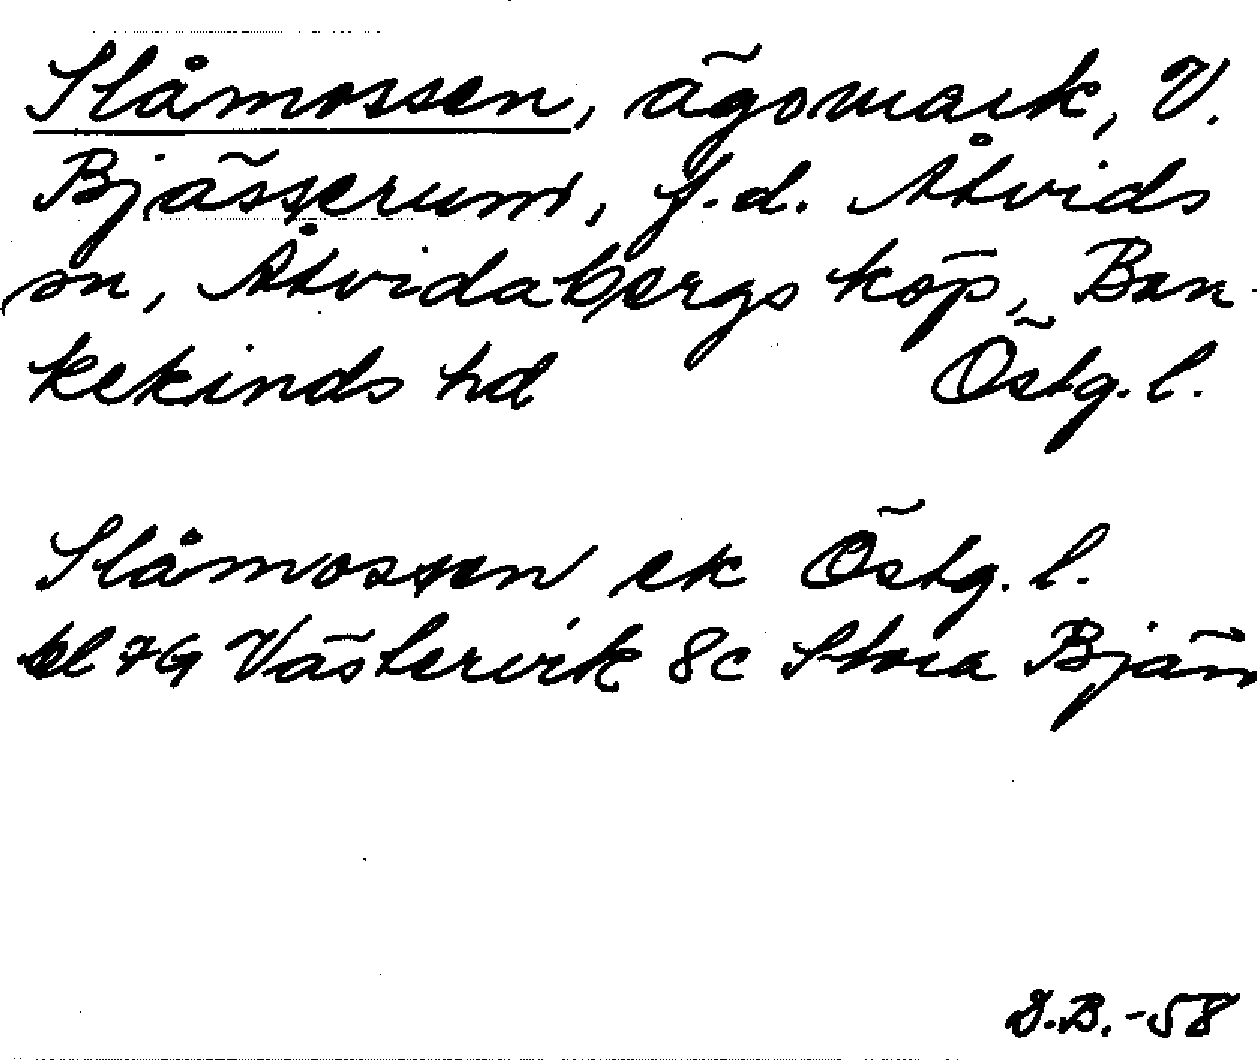 Slåmossen, ägomark, V.
Bjässerum, f.d. Åtvids
sn, Åtvidabergs köp, Ban-
kekinds hd Östg. l.
Slåmossen ek Östg. l.
bl 7G Västervik 8c Stora Bjäm
D.B.-58